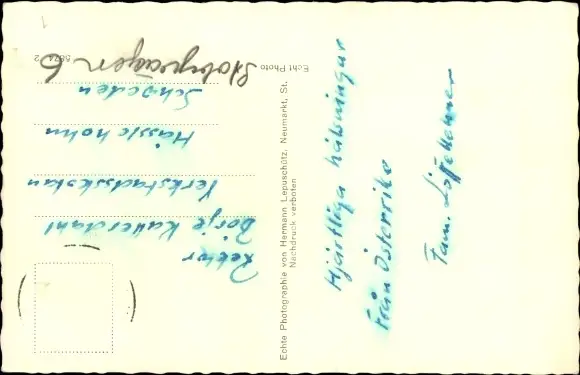 Hjärtliga hälsningar
från Österrike
Fam. Löffelehner
Echte Photographie von Hermann Lepuschütz, Neumarkt, St.
Nachdruck verboten
Rektor
Börje Kallerdahl
Verkstadsskolan
Hässleholm
Schweden
6
Echt Photo
5674 2